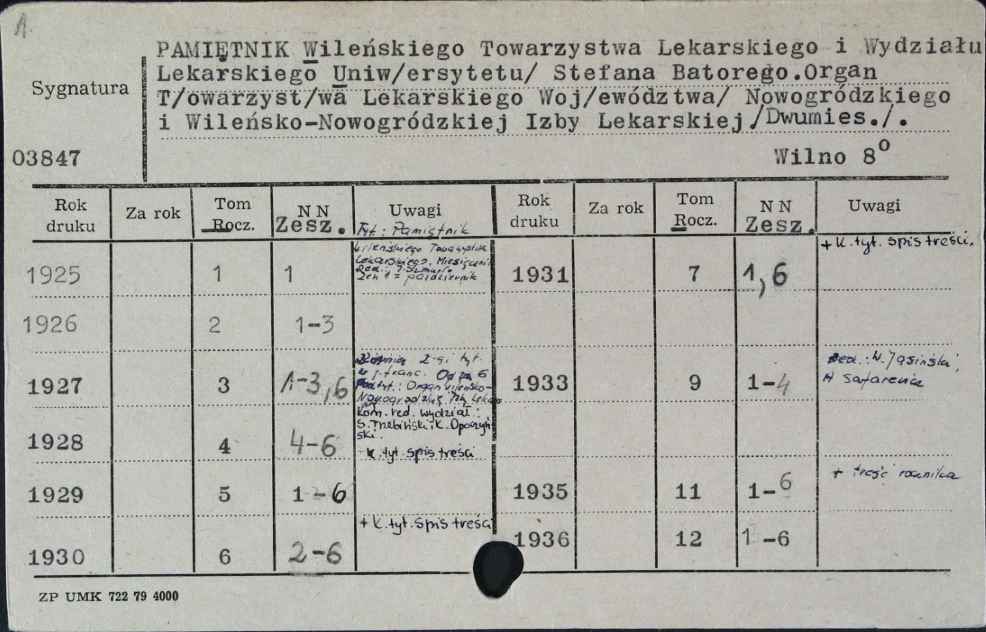 1
PAMIĘTNIK Wileńskiego Towarzystwa Lekarskiego i Wydziału
Lekarskiego Uniw/ersytetu/ Stefana Batorego.Organ
Sygnatura
T/owarzyst/wa Lekarskiego Woj/ewództwa/ Nowogródzkiego
i Wileńsko-Nowogródzkiej Izby Lekarskiej/Dwumies./.
03847 Wilno 8°
Rok druku Za rok Tom Rocz. NN Zesz. Uwagi Rok druku Za rok Tom Rocz. NN Zesz. Uwagi
Tyt: Pamiętnik
Wileńskiego Towarzystwa
Lekarskiego. Miesięcznik
Red.:
Zesz 1 = październik
1925 1 1
+ k. tyt. spis treści.
1931 7 1,6
1926 2 1-3
2-gi tyt.
w j. franc. Od zesz 6
Organ Wileńsko-
Nowogródzkiej Izby Lekar
1927 3 1-3,6
Red.: W. Jasiński,
A Safarewicz
1933 9 1-4
Kom. red. wydział:
S. Trzebiński, K. Opoczyń
ski.
+ k. tyt. spis treści
1928 4 4-6
1929 5 1-6
+ treść rocznika
1935 11 1-6
+ k. tyt. spis treści
1930 6 2-6
1936 12 1-6
ZP UMK 722 79 4000